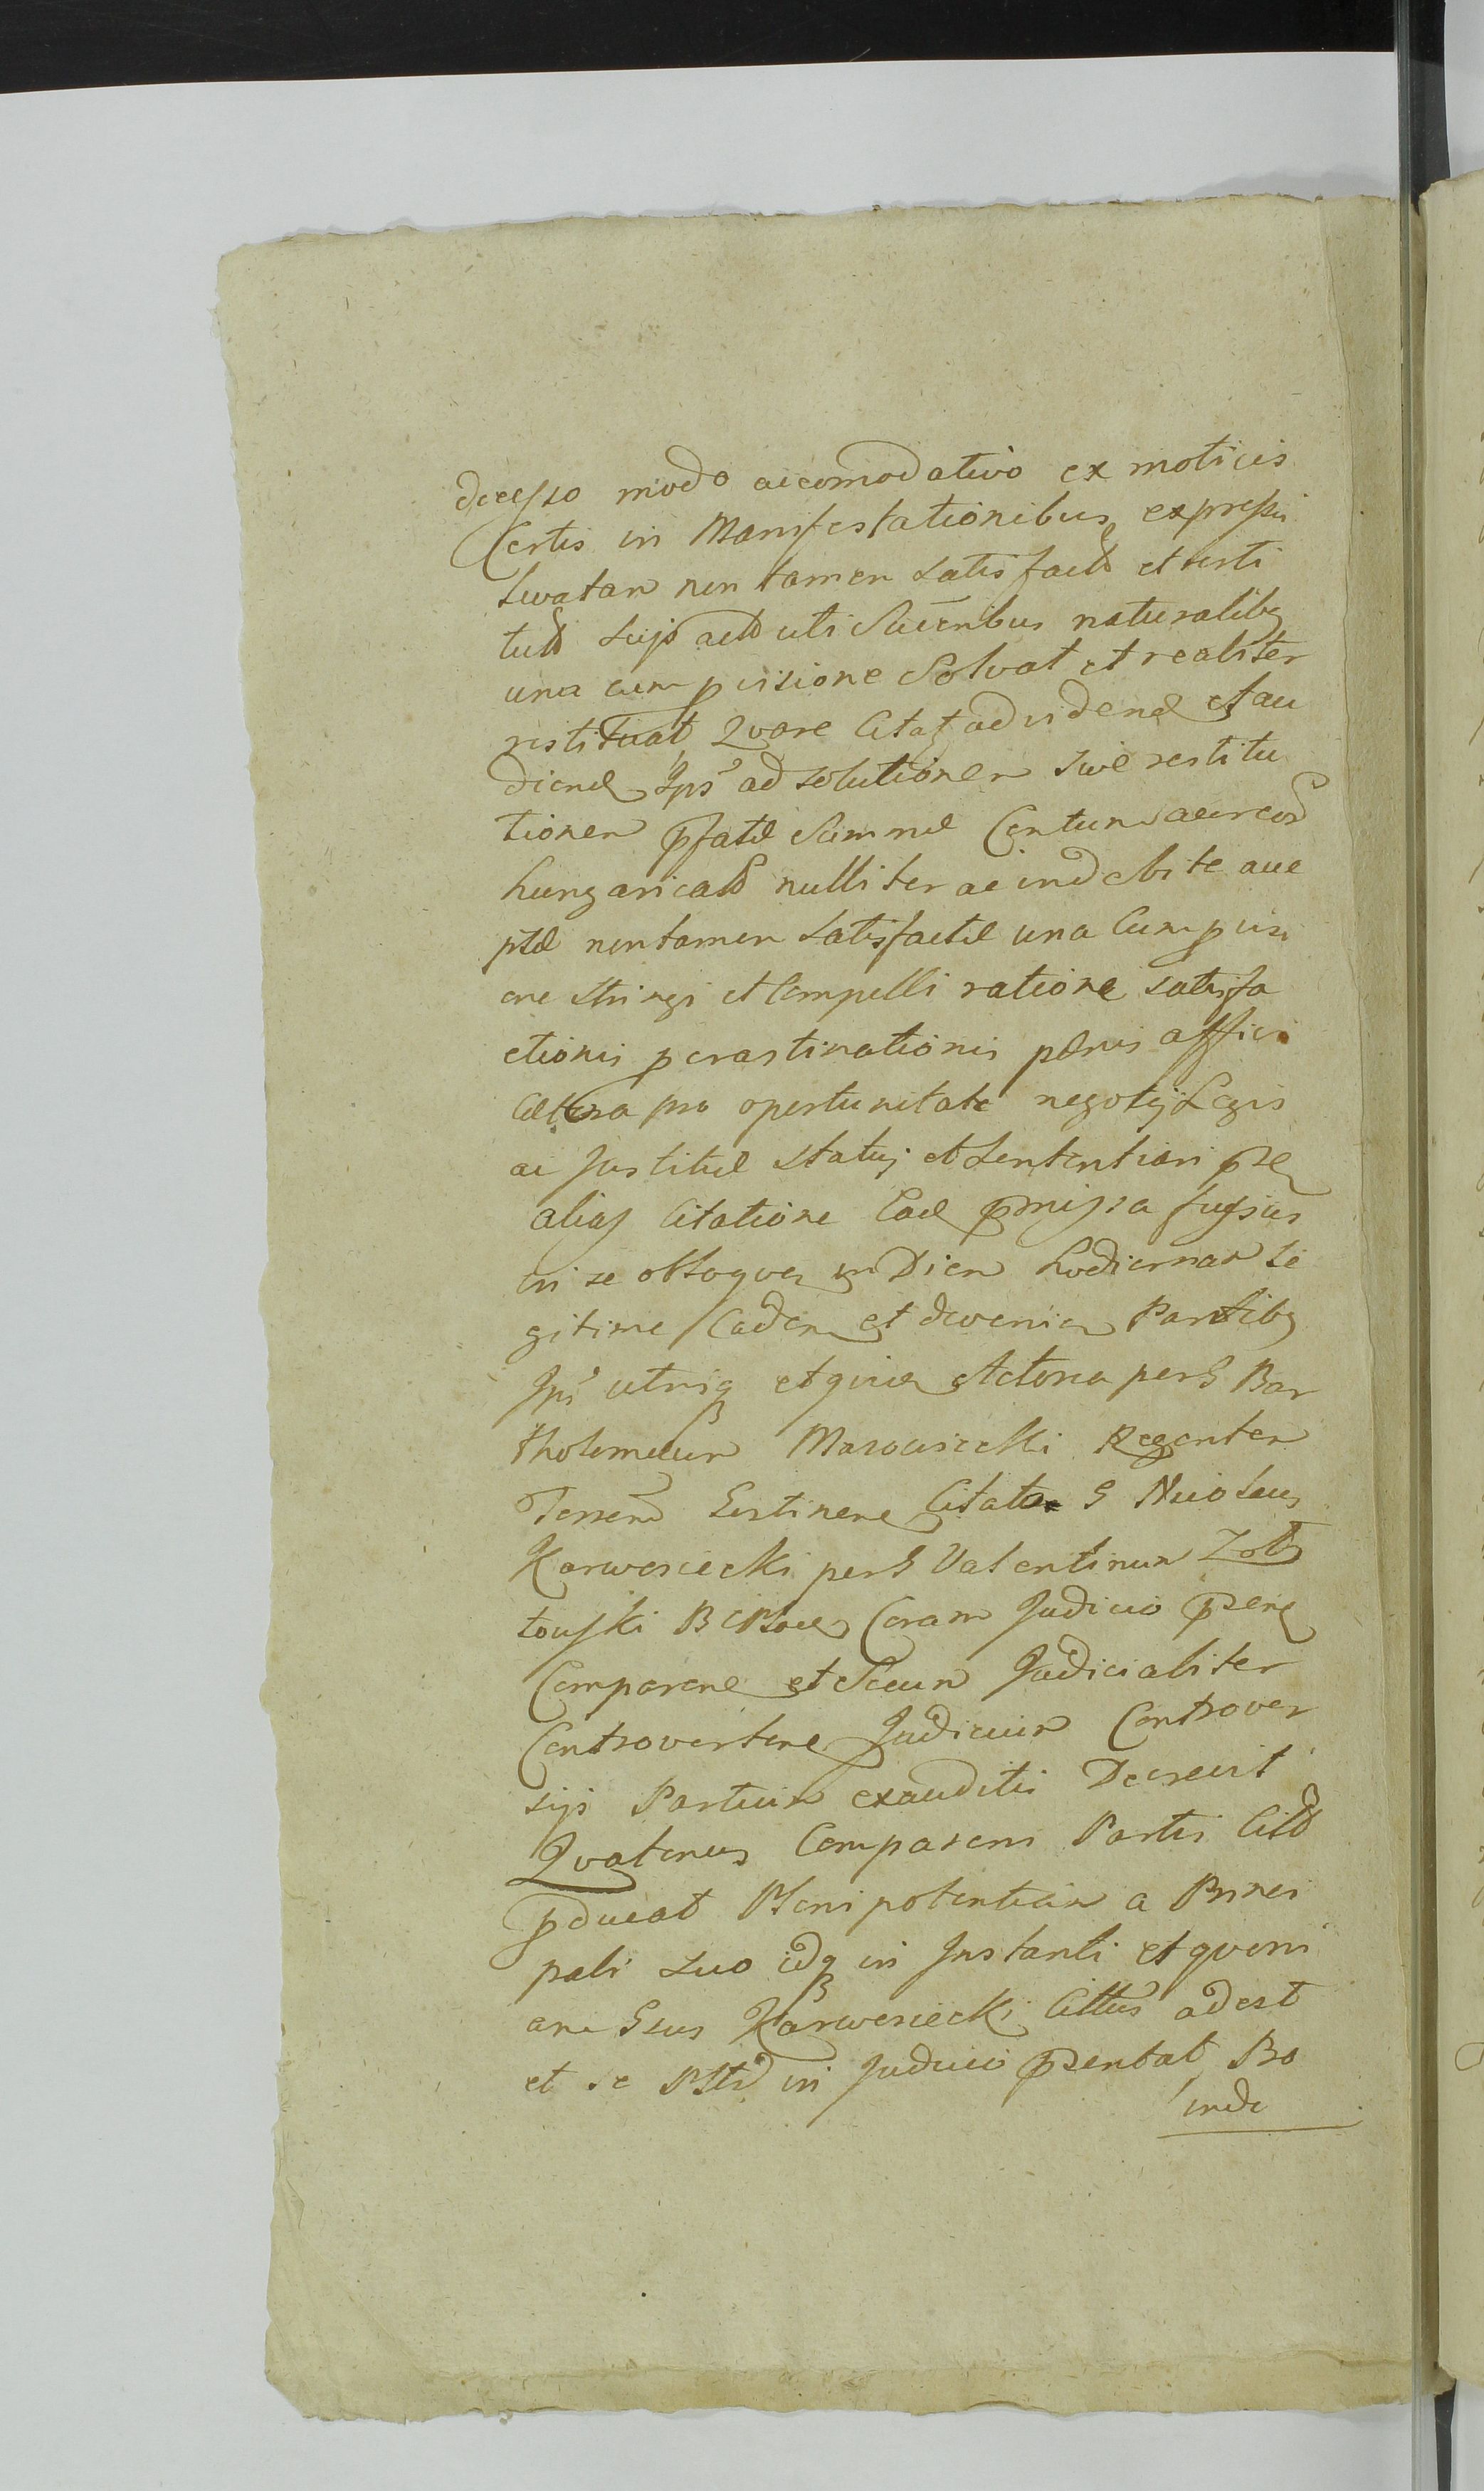 decesso modo accomodativo ex motivis
Certis in Manifestationibus expressis
levatam non tamen satisfactã et resti
tutã seijs actõ uti Sucõribus naturalibq
una cum pvisione Solvat et realiter
restituat Qvare Citatq ad vidend et au
diend Ipsõ ad solutionem sive restitu
tionem pfatæ Summæ Centum aureorũ
hungaricalũ nulliter ac indebite acce
ptæ non tamen satisfactæ una Cum pvisi
one stringi et Compelli ratione satisfa
ctionis pcrastinationis pænis affici
Cætera pro oportunitate negotij Legis
ac Justitiæ statui et sententiari pse
aliaq Citatione Eaq pmissa fusius
in se obloqven in Diem hodiernam le
gitime Caden et deveniẽ Partibq
Ipsis utrisq et qvidẽ Actorea per G Bar
tholomæum Marowsiecki Regentem
Terrenũ Lestinenẽ Citata G Nicolaus
Karwosiecki per G Valentinum Zol
towski B Plocẽ Coram Judicio psenẽ
Comparenẽ et Secum Judicialiter
Controvertenẽ Judicium Controver
sijs Partium exauditis Decrevit
Qvatenus Comparens Partis Citã
pducat Plenipotentiam a Princi
pali suo idq in Instanti et qvoni
am Gsus Karwosiecki Cittus adest
et se psltr in Judicio psentat Pro
inde